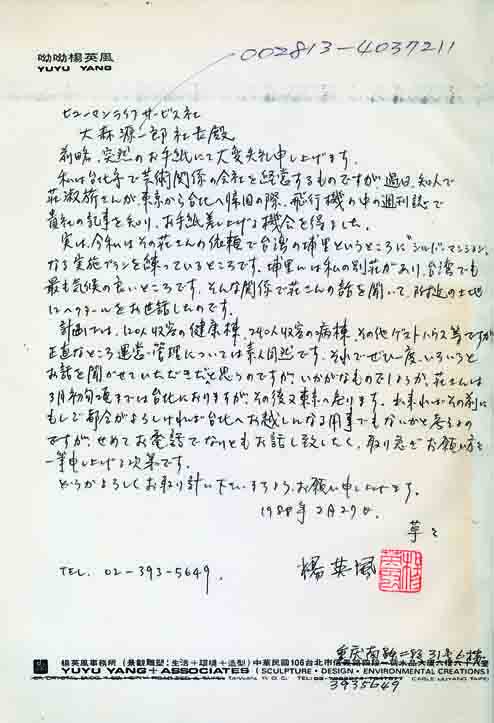 呦呦楊英風
YUYU YANG
002813-4037211
ヒューマンライフサービス社
大森源一郎社長殿
前略、突然のお手紙にて大変失礼申し上げます。
私は台北市で芸術関係の会社を経営するものですが過日、知人で
荘淑旂さんが東京から台北へ帰国の際、飛行機の中の週刊誌で
貴社の記事を知り、お手紙差し上げる機会を得ました。
実は、今私はその荘さんの依頼で台湾の埔里というところに"シルバーマンション"
なる実施プランを練っているところです。埔里には私の別荘があり、台湾でも
最も気候の良いところです。そんな関係で荘さんの話を聞いて、附近の土地
ヘクタールをお世話したのです。
計画では、120人収容の健康棟、240人収容の病棟、その他ゲストハウス等ですが
正直なところ運営・管理については素人同然です。それでぜひ一度、いろいろと
お話を聞かせていただきたいと思うのですが、いかがなものでしょうか。荘さんは
3月初旬頃までは台北におりますが、その後又東京へ戻ります。出来ればその前に
もしご都合がよろしければ台北へお越しになる用事でもないかと考えるの
ですが、せめてお電話でなりともお話し致したく、取り急ぎお願い方々
一筆申し上げる次第です。
どうかよろしくお取り計い下さいますよう、お願い申し上げます。
1988年2月27日.
草々
TEL. 02-393-5649.
楊英風
重庆南路二段31号6楼
楊英風事務所(景觀雕塑:生活+環境+造型)中華民國106台北市
YUYU YANG+ASSOCIATES (SCULPTURE・DESIGN・ENVIRONMENTAL CREATIONS)
3935649